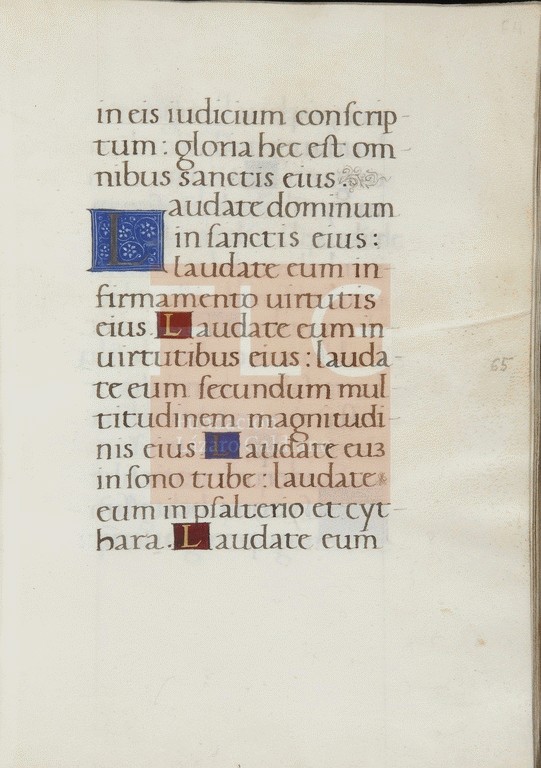 54
in eis iudicium conscrip-
tum: gloria hec est om-
nibus sanctis eius.
Laudate dominum
in sanctis eius:
laudate eum in-
firmamento uirtutis
eius. Laudate eum in-
uirtutibus eius: lauda-
te eum secundum mul-
65
titudinem magnitudi-
nis eius Laudate euʒ
in sono tube: laudate
eum in psalterio et cyt-
hara. Laudate eum